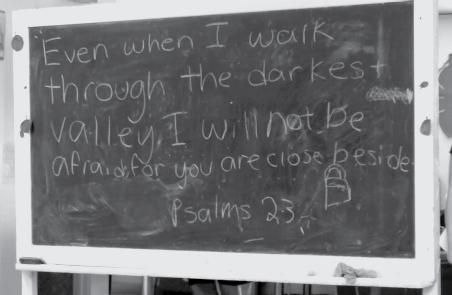 "Even when I walk
through the darkest
valley I will not be
afraid, for you are close beside
Psalms 23: